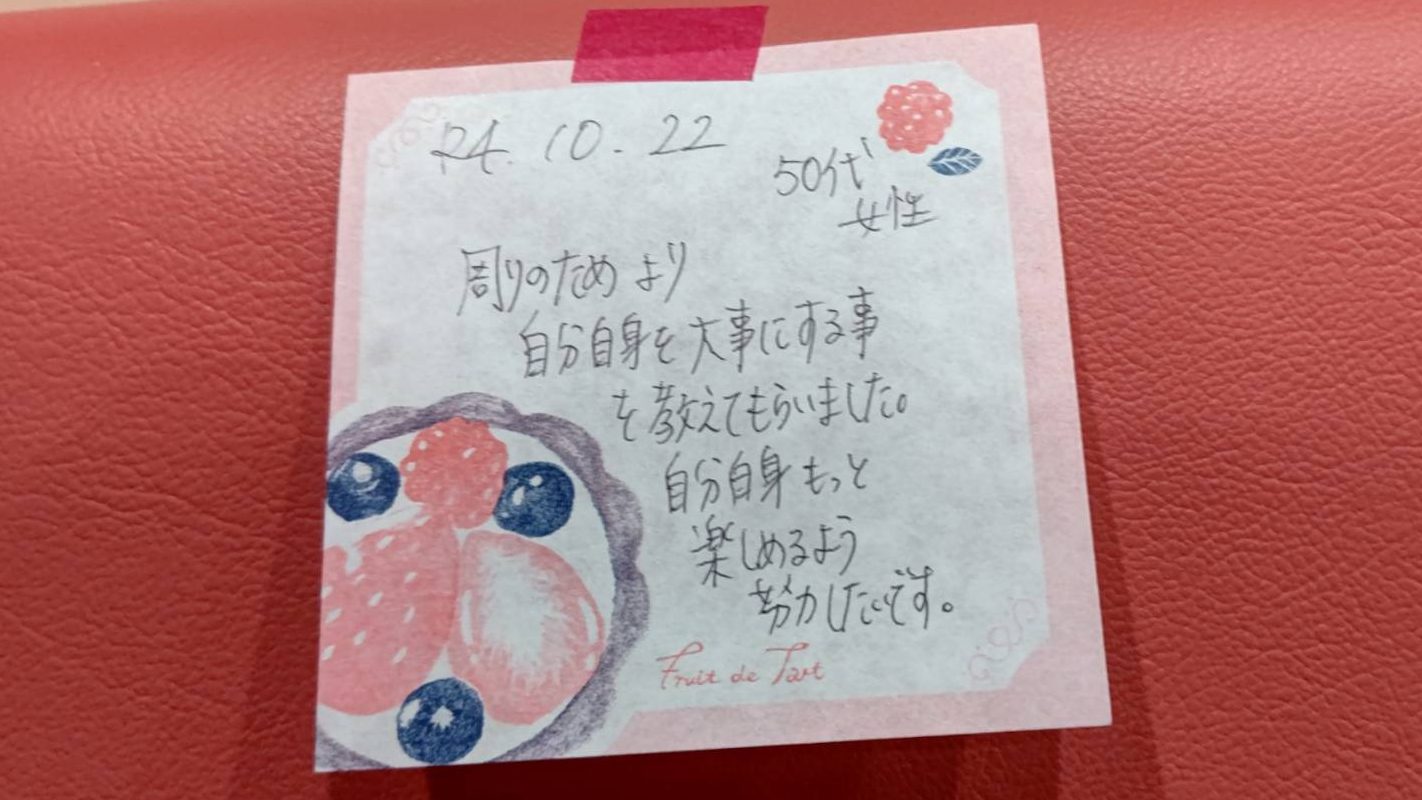 R4.10.22
50代
女性
周りのためより
自分自身を大事にする事
を教えてもらいました。
自分自身もっと
楽しめるよう
努力したいです。
Fruit de Tart